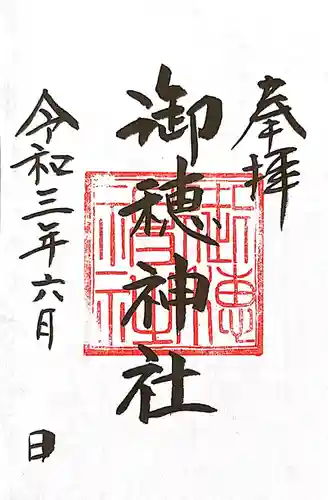 奉拝
御穂神社
御穂神社
令和三年六月
日